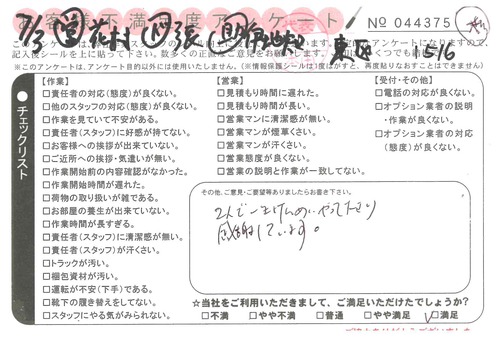 お客様不満足度アンケート
№ 044375
7/3
東区
1516
※このアンケートは、アンケート目的以外には使用いたしません。(※情報保護シールは1度はがすと、再度貼りなおすことはできません)
チェックリスト
【作業】
□責任者の対応(態度)が良くない。
□他のスタッフの対応(態度)が良くない。
□作業を見ていて不安がある。
□責任者(スタッフ)に好感が持てない。
□お客様への挨拶が出来ていない。
□ご近所への挨拶・気遣いが無い。
□作業開始前の内容確認がなかった。
□作業開始時間が遅れた。
□荷物の取り扱いが雑である。
□お部屋の養生が出来ていない。
□作業時間が長すぎる。
□責任者(スタッフ)に清潔感が無い。
□責任者(スタッフ)が汗くさい。
□トラックが汚い。
□梱包資材が汚い。
□運転が不安(下手)である。
□靴下の履き替えをしてない。
□スタッフにやる気がみられない。
【営業】
□見積もり時間に遅れた。
□見積もり時間が長い。
□営業マンに清潔感が無い。
□営業マンが煙草くさい。
□営業マンが汗くさい。
□営業態度が良くない。
□営業の説明と作業が一致してない。
【受付・その他】
□電話の対応が良くない。
□オプション業者の説明
・作業が良くない。
□オプション業者の対応
(態度)が良くない。
その他、ご意見・ご要望等ありましたらお書き下さい。
感謝しています。
☆当社をご利用いただきまして、ご満足いただけたでしょうか?
□不満 □やや不満 □普通 □やや満足 □満足